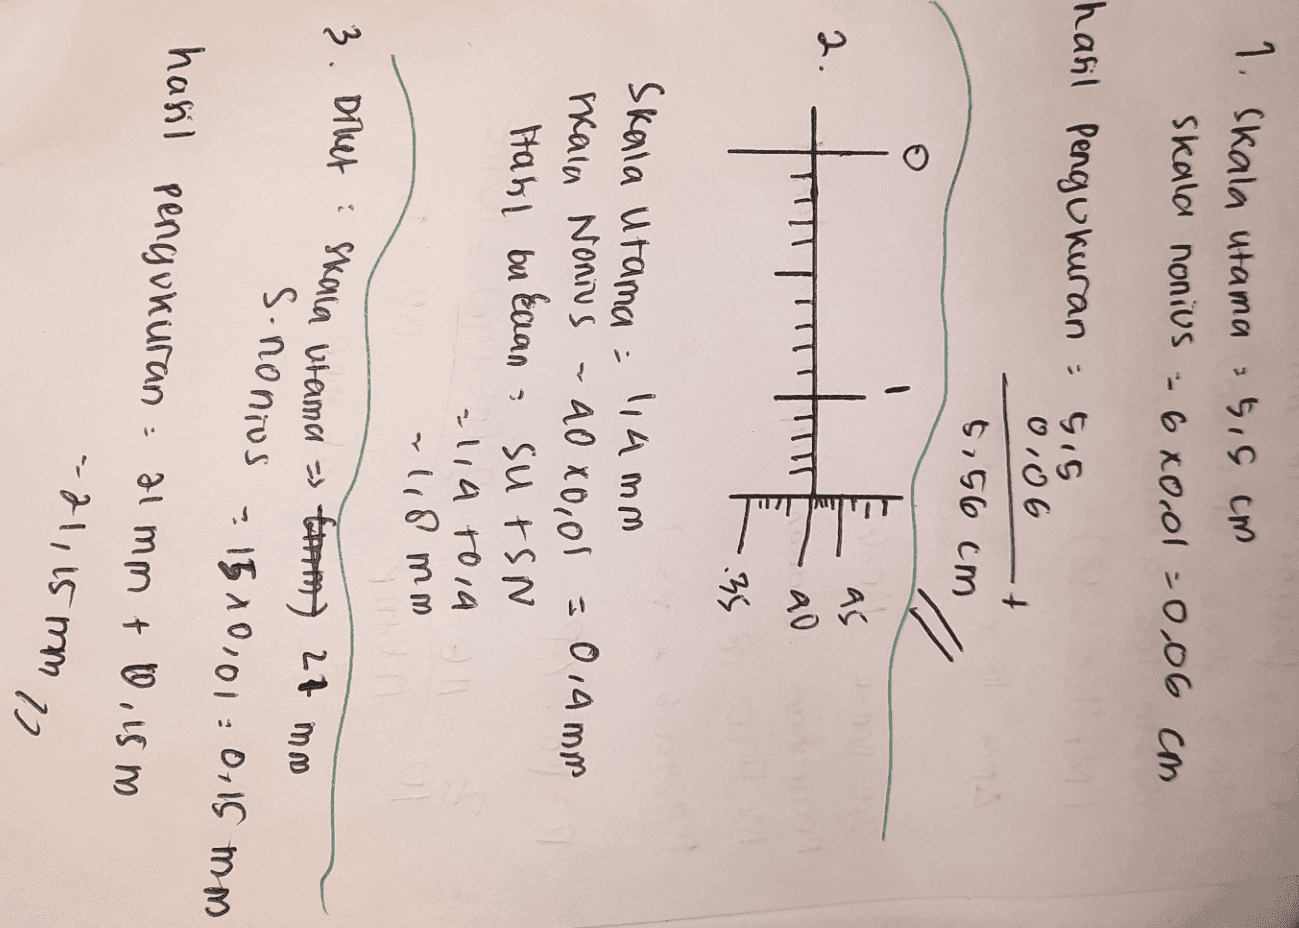 1. Skala utama = 5,5 cm
Skala nonius = 6 x0,01 = 0,06 cm
hasil Pengukuran = 5,5
0,06
+
5,56 cm
2.
0
1
45
40
35
Skala Utama = 1,4 mm
skala Nonius = 40 x0,01 = 0,4 mm
Hasil bacaan = SU + SN
= 1,4 + 0,4
= 1,8 mm
3. Diket : skala utama => 21 mm
S. nonius = 15 x 0,01 = 0,15 mm
hasil pengukuran = 21 mm + 0,15 m
= 21,15 mm //